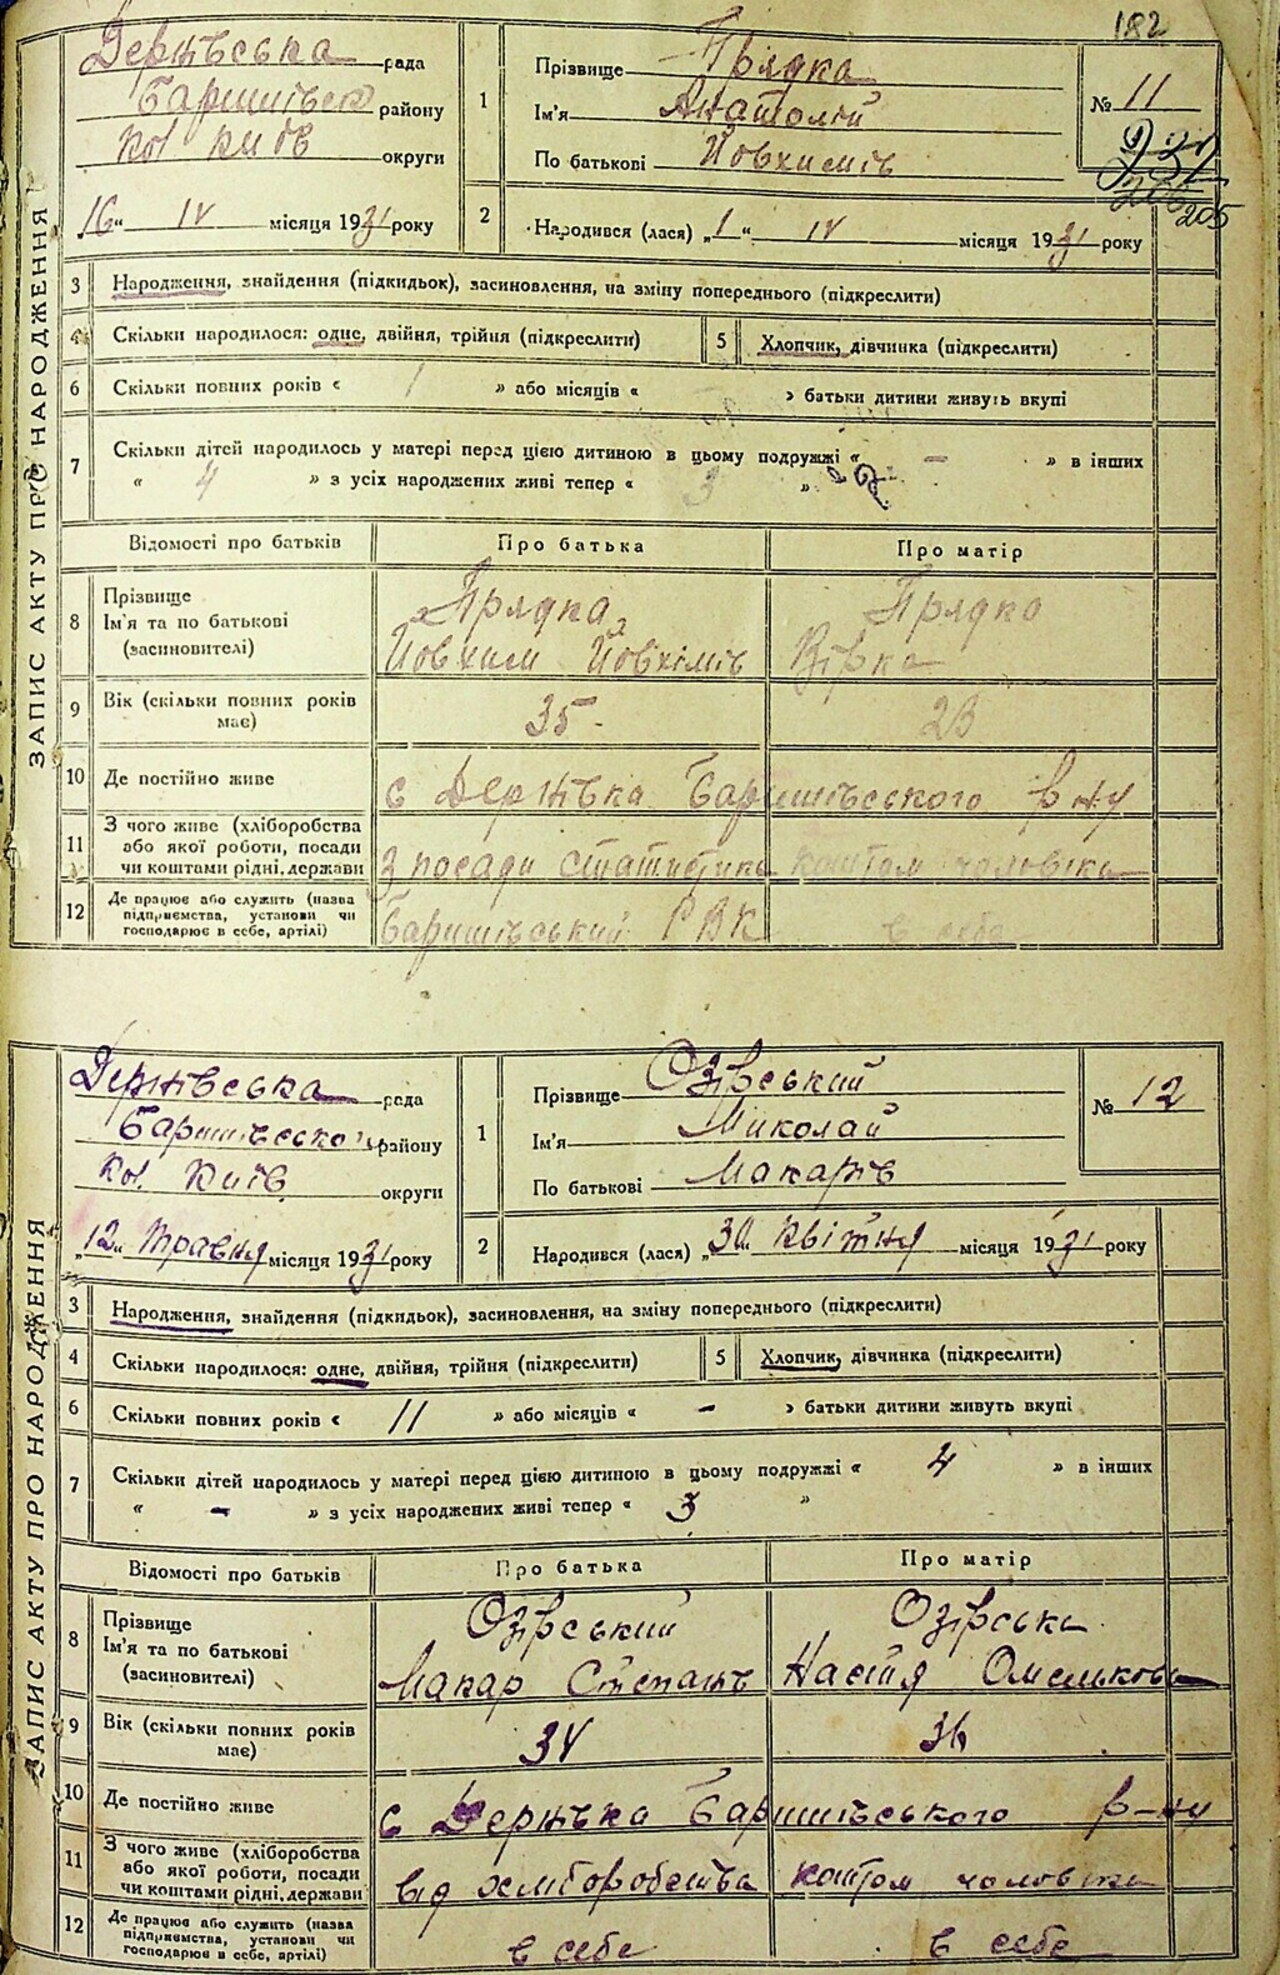 182
ЗАПИС АКТУ ПРО НАРОДЖЕННЯ
Дернівська рада
Баришівськ району
кол. Київ округи
„16“ IV місяця 1931 року
1
Прізвище Прядка
Ім'я Анатолій
По батькові Йовхимів
№ 11
205
2
Народився (лася) „1“ IV місяця 1931 року
3 Народження, знайдення (підкидьок), засиновлення, на зміну попереднього (підкреслити)
4 Скільки народилося: одне, двійня, трійня (підкреслити)
5 Хлопчик, дівчинка (підкреслити)
6 Скільки повних років « 1 » або місяців « » батьки дитини живуть вкупі
7 Скільки дітей народилось у матері перед цією дитиною в цьому подружжі « – » в інших
« 4 » з усіх народжених живі тепер « 3 »
Відомості про батьків Про батька Про матір
8 Прізвище
Ім'я та по батькові
(засиновителі)
Прядка
Йовхим Йовхімів
Прядко
Вірка
9 Вік (скільки повних років
має)
35 23
10 Де постійно живе с Дернівка Баришівського р-ну
11 З чого живе (хліборобства
або якої роботи, посади
чи коштами рідні, держави
з посади статистика коштом чоловіка
12 Де працює або служить (назва
підприємства, установи чи
господарює в себе, артілі)
Баришівський РВК в себе
ЗАПИС АКТУ ПРО НАРОДЖЕННЯ
Дернівська рада
Баришівсько району
кол. Київ округи
„12“ Травня місяця 1931 року
1
Прізвище Озірський
Ім'я Миколай
По батькові Макарів
№ 12
2
Народився (лася) „30“ квітня місяця 1931 року
3 Народження, знайдення (підкидьок), засиновлення, на зміну попереднього (підкреслити)
4 Скільки народилося: одне, двійня, трійня (підкреслити)
5 Хлопчик, дівчинка (підкреслити)
6 Скільки повних років « 11 » або місяців « - » батьки дитини живуть вкупі
7 Скільки дітей народилось у матері перед цією дитиною в цьому подружжі « 4 » в інших
« - » з усіх народжених живі тепер « 3 »
Відомості про батьків Про батька Про матір
8 Прізвище
Ім'я та по батькові
(засиновителі)
Озірський
Макар Степанів
Озірська
Настя Омелькова
9 Вік (скільки повних років
має)
34 36
10 Де постійно живе с Дернівка Баришівського р-ну
11 З чого живе (хліборобства
або якої роботи, посади
чи коштами рідні, держави
від хліборобства коштом чоловіка
12 Де працює або служить (назва
підприємства, установи чи
господарює в себе, артілі)
в себе в себе